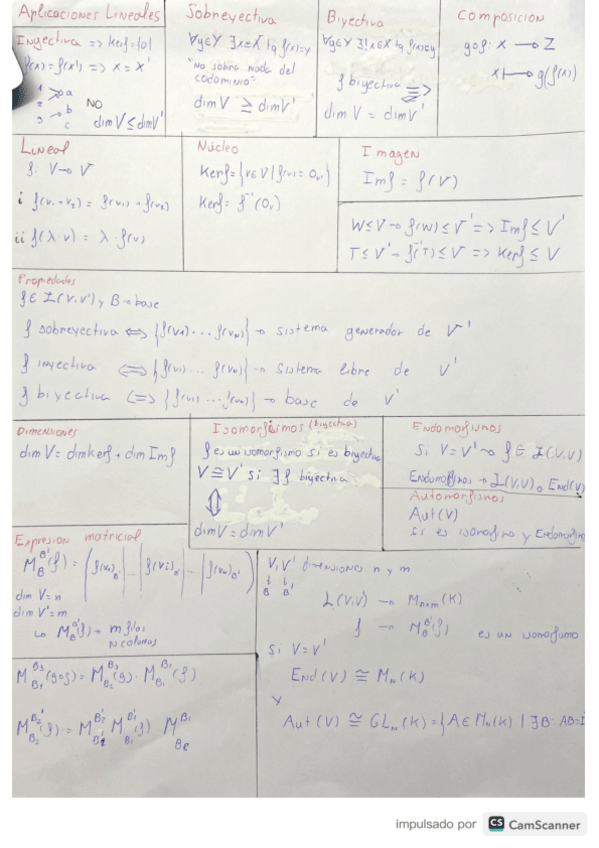 Aplicaciones Lineales
Inyectiva => kerf={0}
f(x)=f(x') => x=x'
1 a
2 b
3 c
NO
dim V ≤ dim V'
Sobreyectiva
∀y∈Y ∃x∈X tq f(x)=y
"No sobra nada del
codominio"
dim V ≥ dim V'
Biyectiva
∀y∈Y ∃!x∈X tq f(x)=y
f biyectiva <=>
dim V = dim V'
Composicion
g∘f: X → Z
x ↦ g(f(x))
Lineal
f: V → V
i f(v₁+v₂) = f(v₁)+f(v₂)
ii f(λ·v) = λ·f(v)
Núcleo
Kerf={v∈V | f(v)=0v'}
Kerf= f⁻¹(0v')
Imagen
Imf = f(V)
W≤V → f(W)≤V' => Imf≤V'
T≤V' → f⁻¹(T)≤V => Kerf≤V
Propiedades
f∈L(V,V') y B→base
f sobreyectiva <=> {f(v1)...f(vn)} → sistema generador de V'
f inyectiva <=> {f(v1)...f(vn)} → sistema libre de V'
f biyectiva <=> {f(v1)...f(vn)} → base de V'
Dimensiones
dim V = dim kerf + dim Imf
Isomorfismos (biyectiva)
f es un isomorfismo si es biyectiva
V≅V' si ∃f biyectiva
⇕
dim V = dim V'
Endomorfismos
Si V=V' → f∈L(V,V)
Endomorfismos → L(V,V) o End(V)
Automorfismos
Aut(V)
Si es isomorfismo y Endomorf
Expresion matricial
M_B^B'(f) = (f(v₁)_B' | ... | f(vi)_B' | ... | f(vn)_B')
dim V=n
dim V'=m
↳ M_B^B'(f) → m filas
n columnas
V,V' dimensiones n y m
B B'
L(V,V) → M_nxm(K)
f → M_B^B'(f) es un isomorfismo
Si V=V'
End(V) ≅ M_n(K)
y
Aut(V) ≅ GL_n(K)={A∈M_n(K) | ∃B: AB=I
M_B₁^B₃(g∘f)= M_B₂^B₃(g) · M_B₁^B₂(f)
M_B₂^B₂'(f)= M_B₁'^B₂' M_B₁^B₁'(f) M_B₂^B₁
impulsado por CS CamScanner